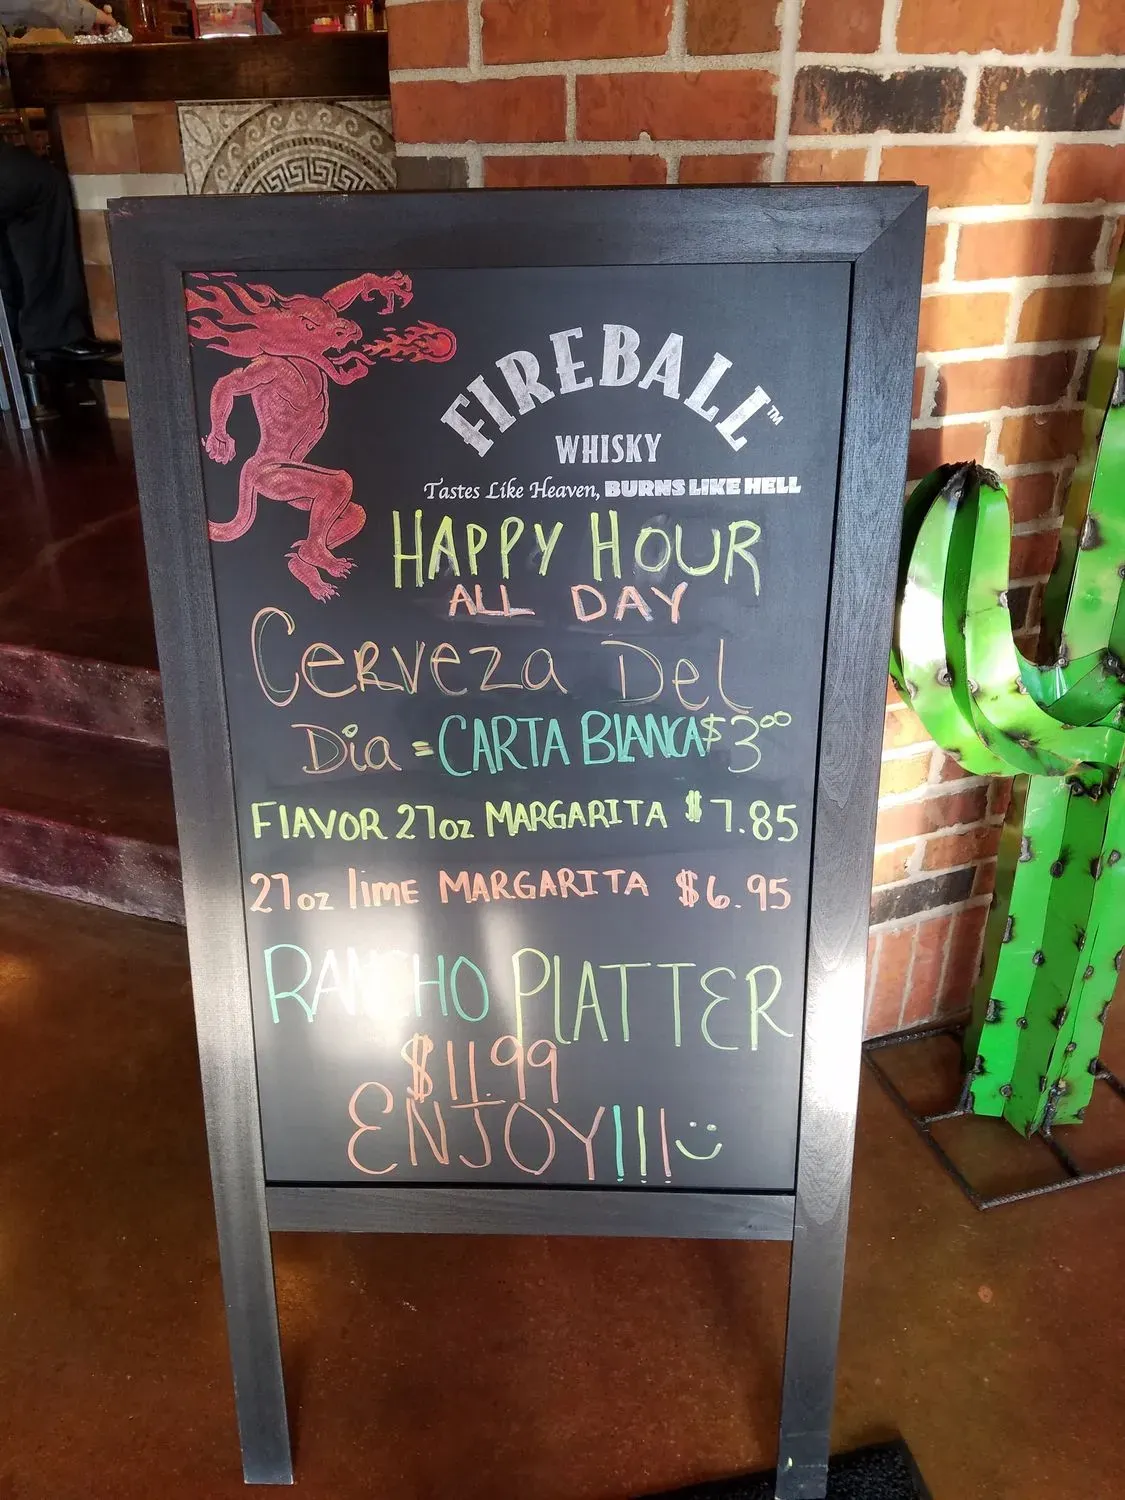 FIREBALL™
WHISKY
Tastes Like Heaven, BURNS LIKE HELL
HAPPY HOUR
ALL DAY
Cerveza Del
Dia = CARTA BLANCA $3⁰⁰
FlAVOR 27oz MARGARITA $7.85
27oz lime MARGARITA $6.95
RANCHO PLATTER
$11.99
ENJOY!!!